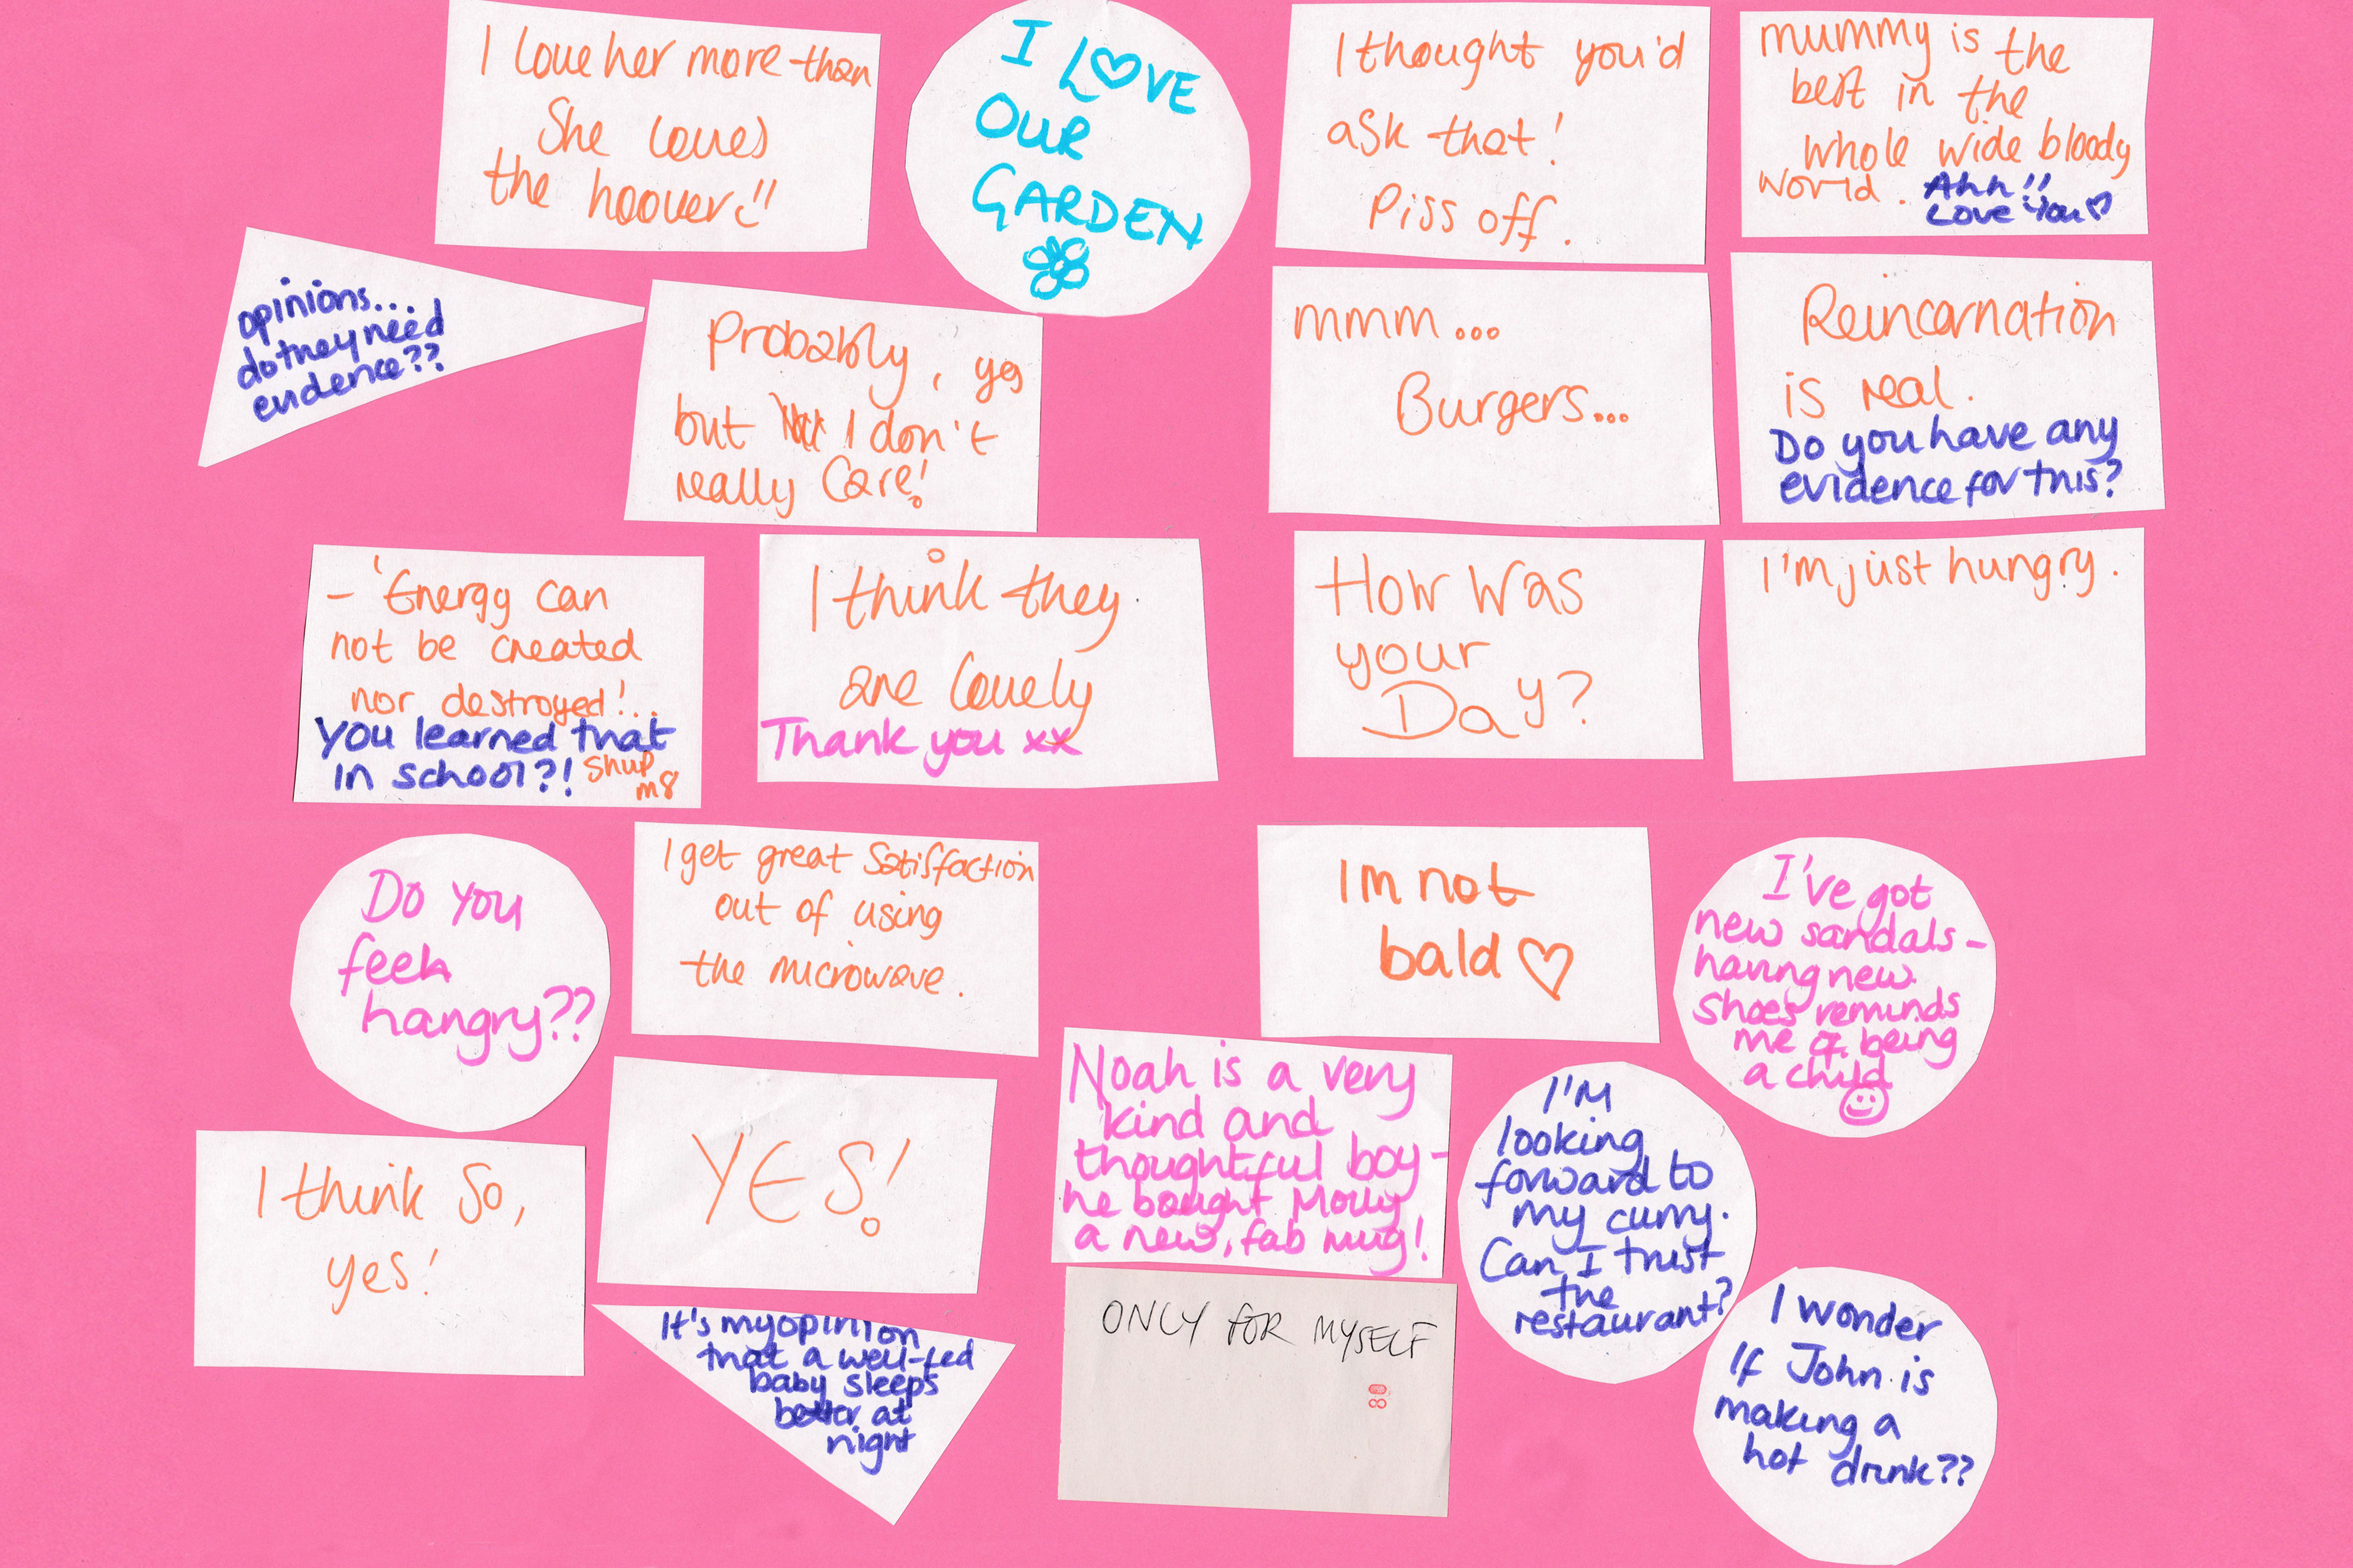 I love her more than
She loves
the hoover!!
I LOVE
OUR
GARDEN
I thought you'd
ask that!
Piss off.
mummy is the
best in the
whole wide bloody
world. Ahh!!
Love You
opinions...
do they need
evidence??
Probably, yes
but I don't
really Care!
mmm...
Burgers...
Reincarnation
is real.
Do you have any
evidence for this?
- 'Energy can
not be created
nor destroyed!..
You learned that
in school?! Shup
m8
I think they
are lovely
Thank you xx
How was
your
Day?
I'm just hungry.
Do you
feel
hangry??
I get great Satisfaction
out of using
the microwave.
Im not
bald
I've got
new sandals -
having new
shoes reminds
me of being
a child
I think So,
yes!
YES!
Noah is a very
kind and
thoughtful boy -
he bought Molly
a new, fab mug!
I'M
looking
forward to
my curry.
Can I trust
the
restaurant?
It's my opinion
that a well-fed
baby sleeps
better at
night
ONLY FOR MYSELF
80
I wonder
If John is
making a
hot drink??